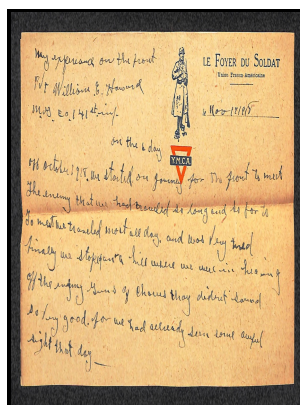 My experience on the front
Pvt William E. Howard
LE FOYER DU SOLDAT
Union Franco-Américaine
M.G. Co, 141st inf.
Nov 1918
Y.M.C.A.
on the 6 day
of October 1918, we started on journey for the front to meet
The enemy that we had traveled so long and so far is
To meet we traveled most all day, and was very tired
finally we stopped on a hill where we were in hearing
off the enemy guns of course they didn't sound
so very good, for we had already seen some awful
sight that day